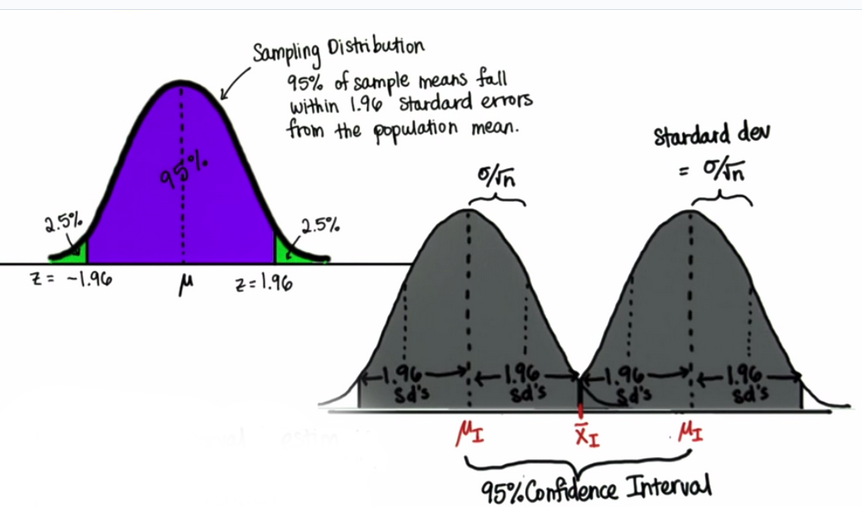 Sampling Distribution
95% of sample means fall
within 1.96 standard errors
from the population mean.
95%
2.5%
2.5%
z = -1.96
μ
z = 1.96
σ/√n
Standard dev
= σ/√n
1.96
sd's
1.96
sd's
1.96
sd's
1.96
sd's
μI
x̄I
μI
95% Confidence Interval